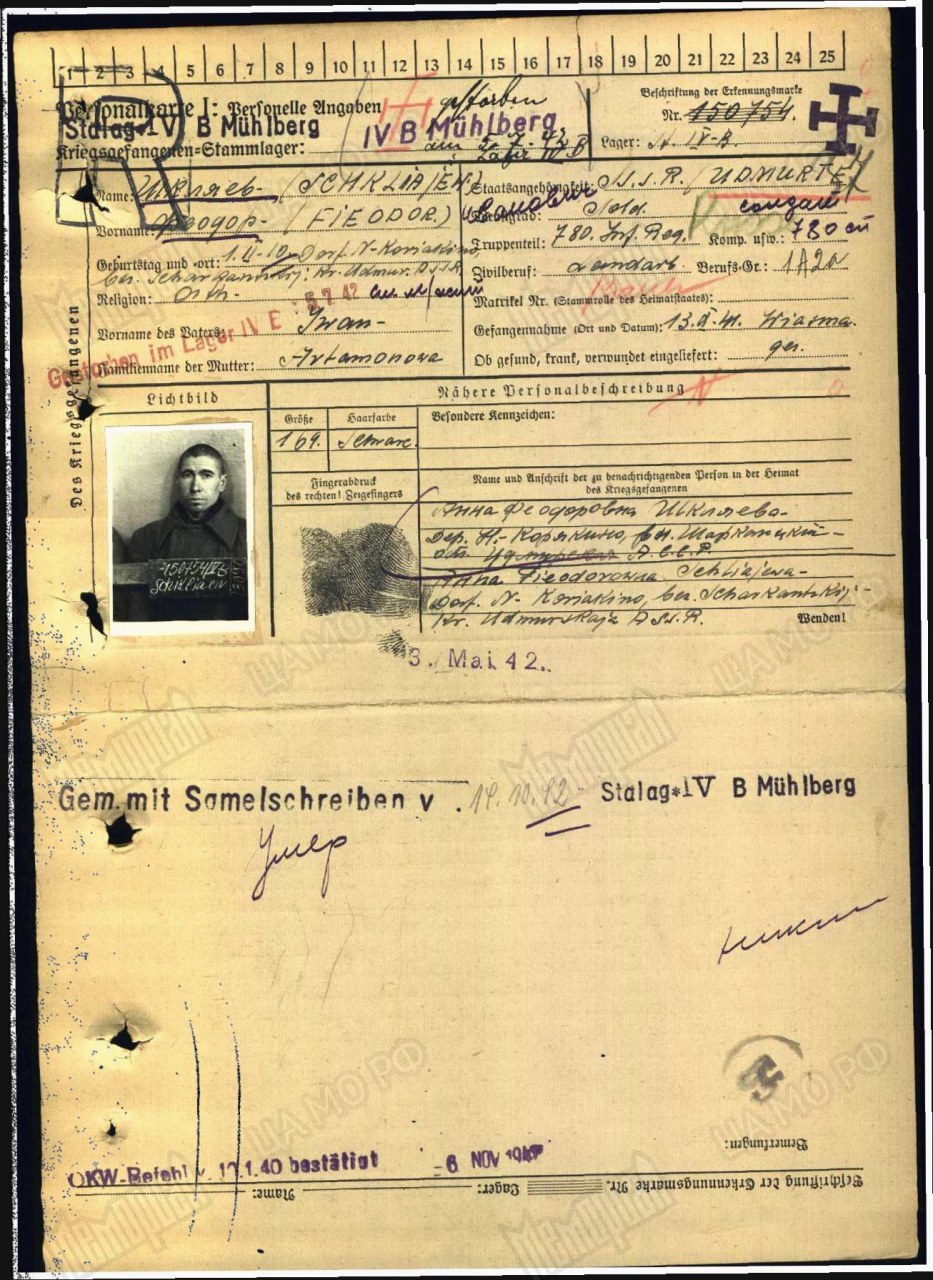 1 2 3 4 5 6 7 8 9 10 11 12 13 14 15 16 17 18 19 20 21 22 23 24 25
Personalkarte I: Personelle Angaben
gestorben
Beschriftung der Erkennungsmarke
Stalag IV B Mühlberg
IV B Mühlberg
Nr. 150754.
Kriegsgefangenen-Stammlager:
Lager: St. IV-B.
Name: Шкляев (SCHKLIAJEW)
Staatsangehörigkeit: S.S.S.R. (UDMURTE)
Vorname: Феодор (FIEDOR) Иванович
Dienstgrad: Sold. солдат
Truppenteil: 780. Inf. Reg. Komp. usw.: 780 сп
Geburtstag und -ort: Dorf. N-Koriakino,
bez. Scharkantskij, Kr. Udmur. ASSR
Zivilberuf: Landarb. Berufs-Gr.: 1A2a
Bauer
Religion: Orth.
5.7.42
Matrikel Nr. (Stammrolle des Heimatstaates):
Vorname des Vaters: Iwan-
Gefangennahme (Ort und Datum): 13.X.41. Wiasma.
Gestorben im Lager IV E
Familienname der Mutter: Artamonowa
Ob gesund, krank, verwundet eingeliefert: ges.
Des Kriegsgefangenen
Lichtbild
Nähere Personalbeschreibung
Größe
Haarfarbe
Besondere Kennzeichen:
169. Schwarz.
Fingerabdruck
des rechten! Zeigefingers
Name und Anschrift der zu benachrichtigenden Person in der Heimat
des Kriegsgefangenen
Анна Феодоровна Шкляева-
Дер. Н-Корякино, Шарканский
Удмурская А.С.С.Р.
Anna Fieodorowna Schliajewa-
Dorf. N-Koriakino, bez. Scharkantskij-
Kr. Udmurskaja ASS.R.
Wenden!
150754 IVB
Schkliaew
3. Mai 42.
Gem. mit Samelschreiben v. 14.10.42 Stalag IV B Mühlberg
Умер
Bemerkungen:
OKW-Befehl v. 1.40 bestätigt
6 NOV 194
Beschriftung der Erkennungsmarke Nr. Lager: Name:
Мемориал
ЦАМО РФ